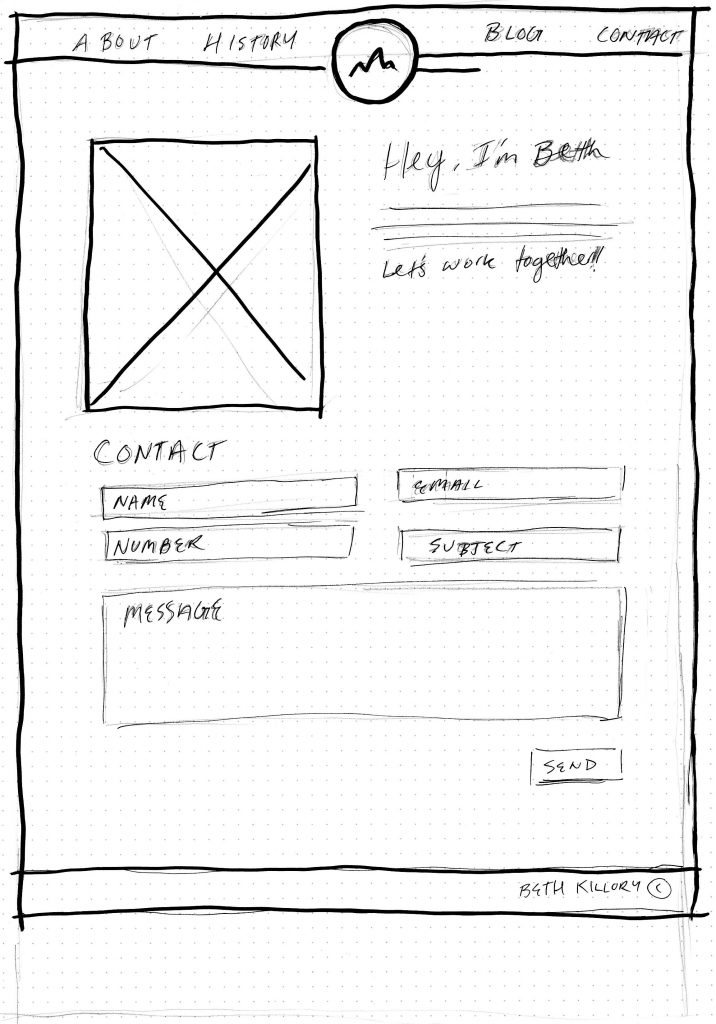 ABOUT HISTORY BLOG CONTACT
Hey, I'm Beth
Let's work together!!
CONTACT
NAME EMAIL
NUMBER SUBJECT
MESSAGE
SEND
BETH KILLORY ©